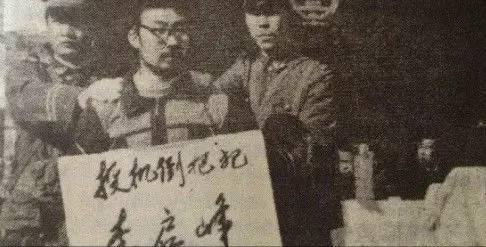 投机倒把犯
峰